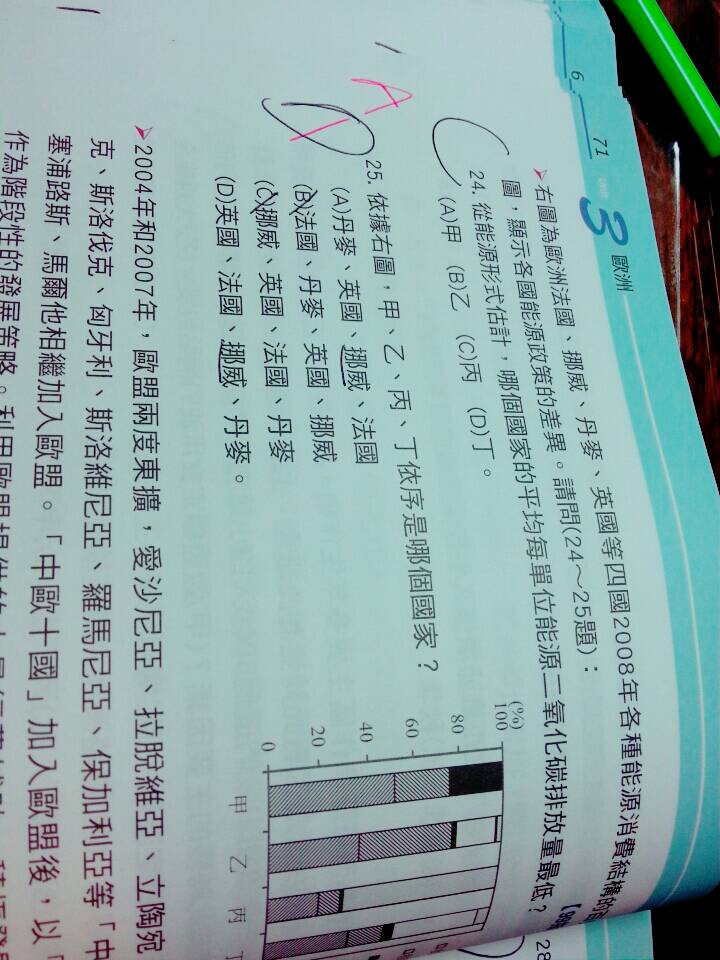 6
71
3 歐洲
右圖為歐洲法國、挪威、丹麥、英國等四國2008年各種能源消費結構的
圖，顯示各國能源政策的差異。請問(24～25題)：
24. 從能源形式估計，哪個國家的平均每單位能源二氧化碳排放量最低？
(A)甲 (B)乙 (C)丙 (D)丁。
A
25. 依據右圖，甲、乙、丙、丁依序是哪個國家？
(A)丹麥、英國、挪威、法國
(B)法國、丹麥、英國、挪威
(C)挪威、英國、法國、丹麥
(D)英國、法國、挪威、丹麥。
(%)
100
80
60
40
20
0
甲
乙
丙
丁
2004年和2007年，歐盟兩度東擴，愛沙尼亞、拉脫維亞、立陶宛
克、斯洛伐克、匈牙利、斯洛維尼亞、羅馬尼亞、保加利亞等「中
塞浦路斯、馬爾他相繼加入歐盟。「中歐十國」加入歐盟後，以
作為階段性的發展策略。利用歐盟提供的
28